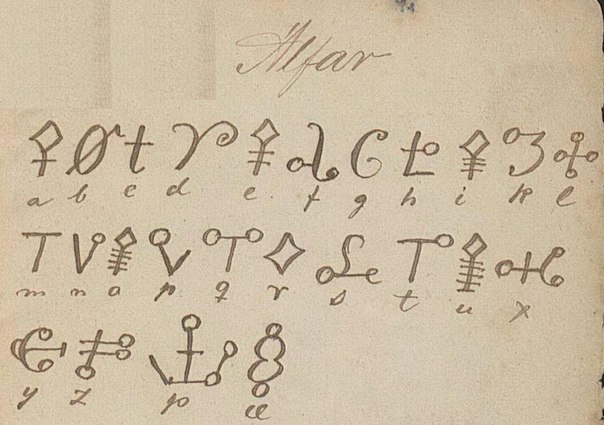 Alfar
a b c d e f g h i k l
m n o p q r s t u x
y z þ æ